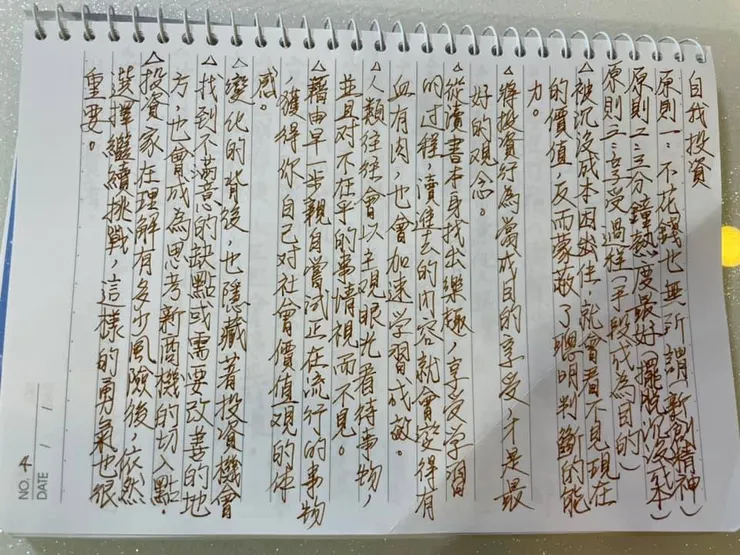 自我投資
原則一:不花錢也無所謂(新創精神)
原則二:三分鐘熱度最好(擺脫沉沒成本)
原則三:享受過程(手段成為目的)
△被沉沒成本困住,就會看不見現在
的價值,反而蒙蔽了聰明判斷的能
力。
△將投資行為當成目的享受,才是最
好的觀念。
△從讀書本身找出樂趣,享受學習
的過程,讀進去的內容就會變得有
血有肉,也會加速學習成效。
△人類往往會以主觀眼光看待事物,
並且对不在乎的事情視而不見。
△藉由早一步親自嘗試正在流行的事物
,獲得你自己对社會價值观的体
感。
△變化的背後,也隱藏著投資機會
△找到不滿意的缺點或需要改善的地
方,也會成為思考新商機的切入點.
△投資家在理解有多少風險後,依然
選擇繼續挑戰,這樣的勇氣也很
重要。
NO. 4
DATE / /